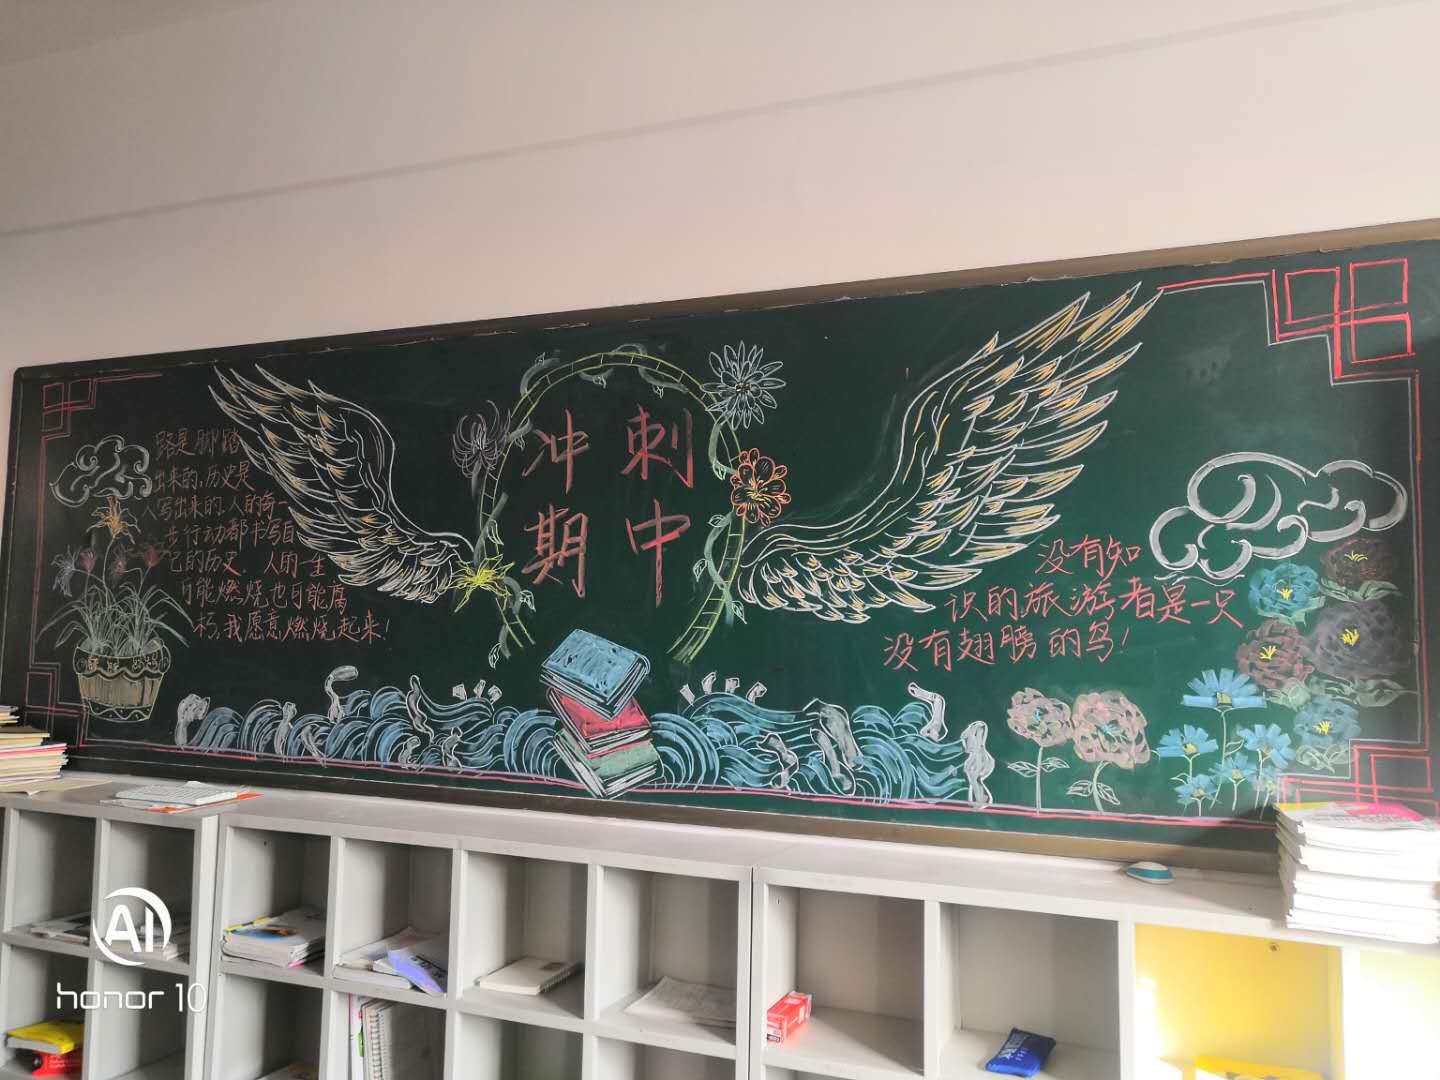 路是脚踏
出来的，历史是
人写出来的.人的每一
步行动都书写自
己的历史. 人的一生
可能燃烧也可能腐
朽，我愿意燃烧起来！
冲刺
期中
没有知
识的旅游者是一只
没有翅膀的鸟！
AI
honor 10